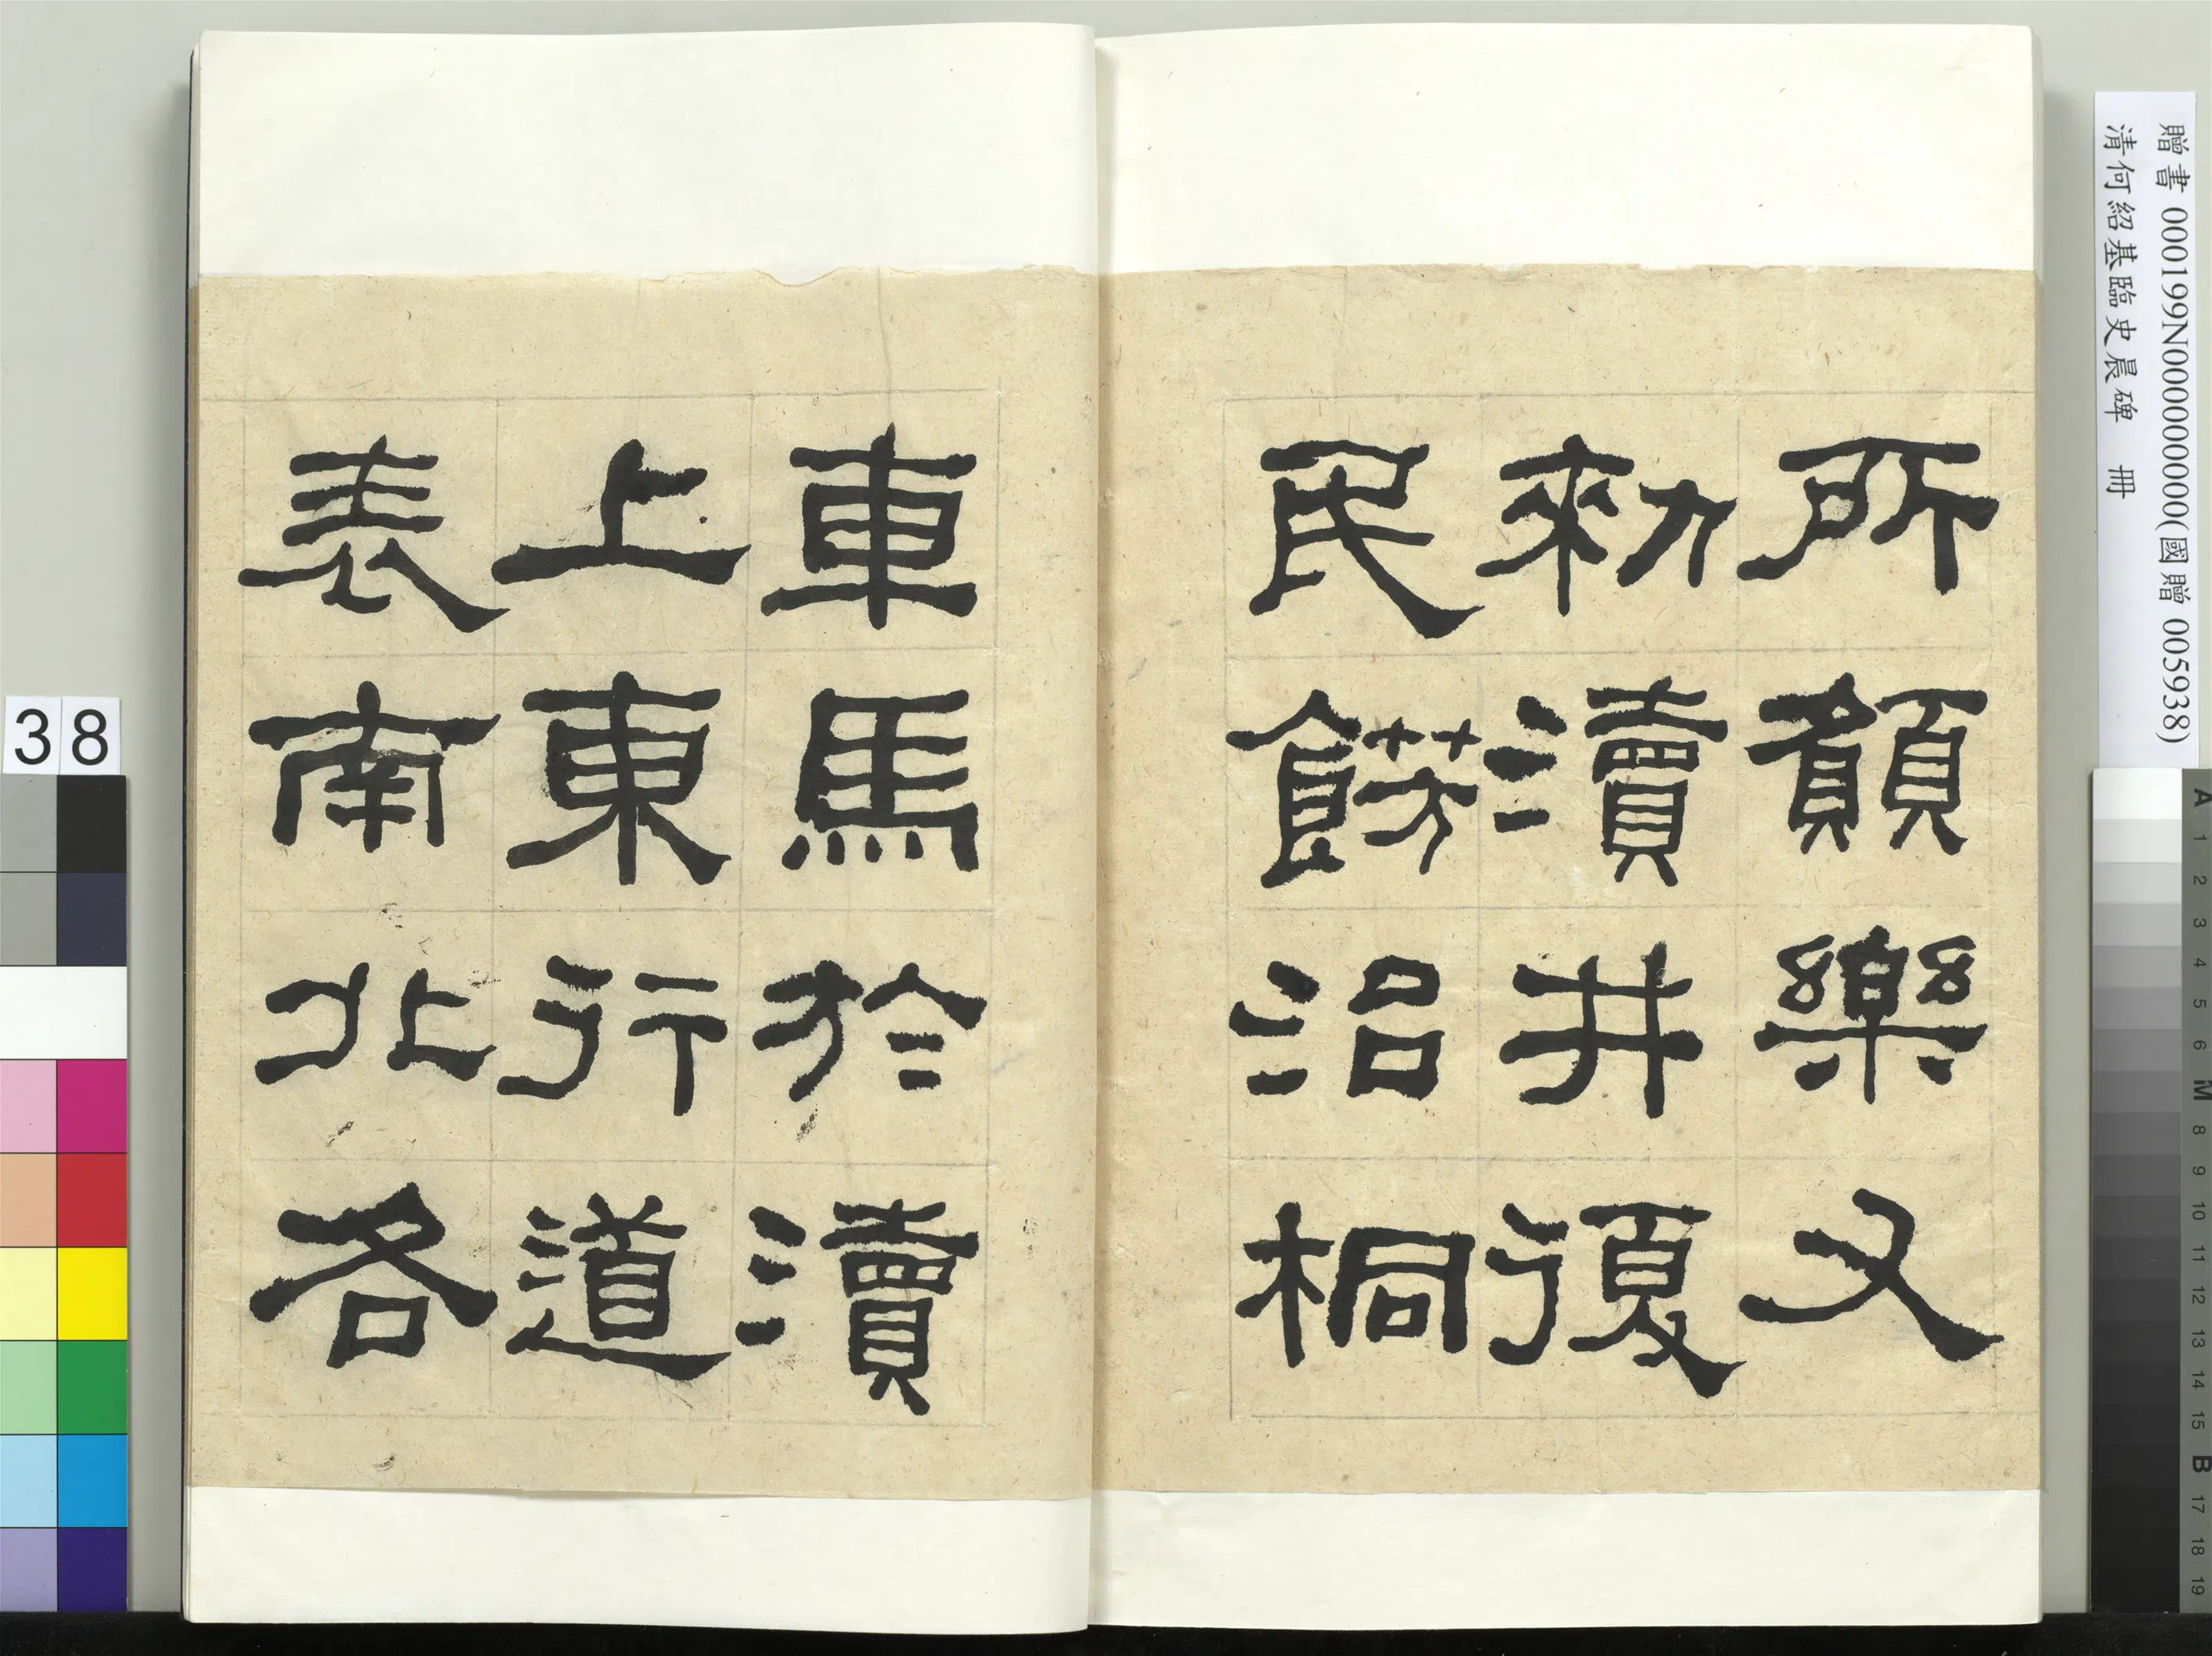 所願樂又
勑瀆井復
民餝治桐
車馬於瀆
上東行道
表南北各
贈書 000199N000000000(國贈 005938)
清何紹基臨史晨碑 冊
38
A 1 2 3 4 5 6 M 8 9 10 11 12 13 14 15 B 17 18 19